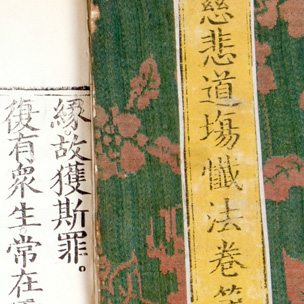 慈悲道場懺法卷第
緣。故獲斯罪。
復有眾生。常在